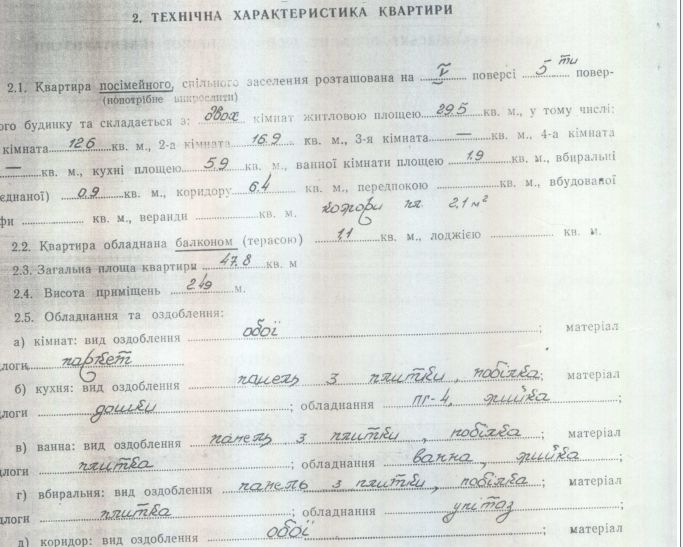 2. ТЕХНІЧНА ХАРАКТЕРИСТИКА КВАРТИРИ
2.1. Квартира посімейного, спільного заселення розташована на V поверсі 5 ти повер-
(непотрібне викреслити)
ого будинку та складається з: двох кімнат житловою площею 29.5 кв. м., у тому числі:
кімната 12.6 кв. м., 2-а кімната 16.9 кв. м., 3-я кімната — кв. м., 4-а кімната
— кв. м., кухні площею 5.9 кв. м., ванної кімнати площею 1.9 кв. м., вбиральні
єднаної) 0.9 кв. м., коридору 6.4 кв. м., передпокою кв. м., вбудованої
фи кв. м., веранди кв. м. 2.1 м²
2.2. Квартира обладнана балконом (терасою) 1.1 кв. м., лоджією кв. м.
2.3. Загальна площа квартири 47.8 кв. м
2.4. Висота приміщень 2.49 м.
2.5. Обладнання та оздоблення:
а) кімнат: вид оздоблення обої ; матеріал
длоги паркет
б) кухня: вид оздоблення панель з плитки, побілка; матеріал
длоги дошки ; обладнання пг-4, мийка ;
в) ванна: вид оздоблення панель з плитки, побілка ; матеріал
длоги плитка ; обладнання ванна, мийка ;
г) вбиральня: вид оздоблення панель з плитки, побілка ; матеріал
длоги плитка ; обладнання унітаз ;
д) коридор: вид оздоблення обої ; матеріал